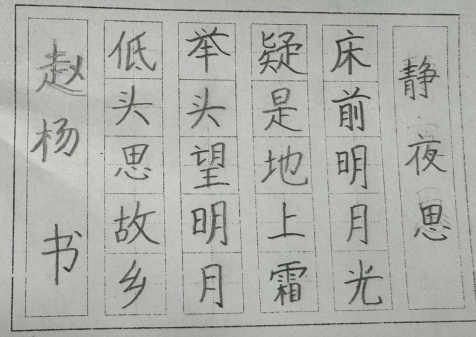 静夜思
床前明月光
疑是地上霜
举头望明月
低头思故乡
赵杨 书